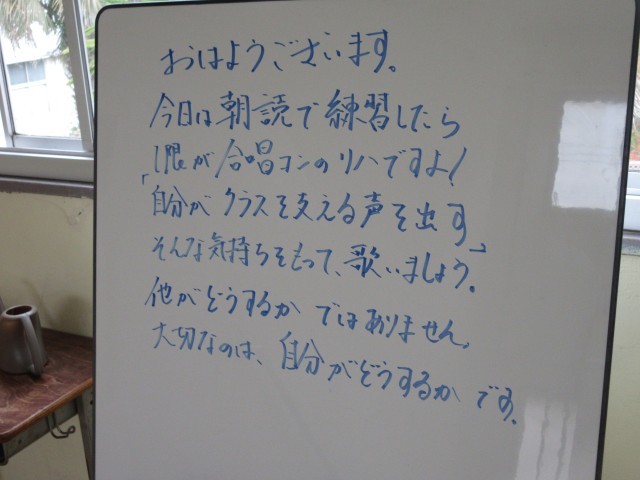 おはようございます。
今日は朝読で練習したら
1限が合唱コンのリハですよ!
「自分がクラスを支える声を出す」
そんな気持ちをもって、歌いましょう。
他がどうするかではありません。
大切なのは、自分がどうするかです。